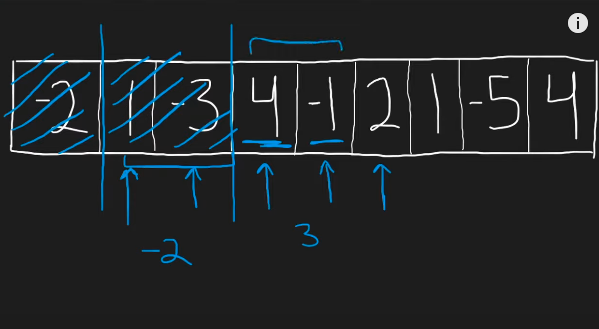 -2 1 -3 4 -1 2 1 -5 4
-2 3